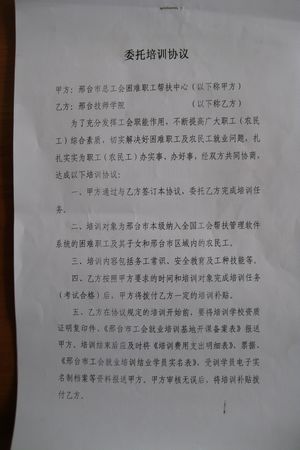 委托培训协议
甲方：邢台市总工会困难职工帮扶中心（以下称甲方）
乙方：邢台技师学院（以下称乙方）
为了充分发挥工会职能作用，不断提高广大职工（农民
工）综合素质，切实解决好困难职工及农民工就业问题，扎
扎实实为职工（农民工）办实事、办好事，经双方共同协商，
达成以下培训协议：
一、甲方通过与乙方签订本协议、委托乙方完成培训任
务。
二、培训对象为邢台市本级纳入全国工会帮扶管理软件
系统的困难职工及其子女和邢台市区域内的农民工。
三、培训内容包括务工常识、安全教育及工种技能等。
四、乙方按照甲方要求的时间和培训对象完成培训任务
（考试合格）后，甲方将拨付乙方一定的培训补贴。
五、乙方在协议规定的培训开始前，要将培训学校资质
证明复印件、《邢台市工会就业培训基地开课备案表》报送
甲方，培训结束后应及时将《培训费用支出明细表》、票据、
《邢台市工会就业培训结业学员实名表》、受训学员电子实
名制档案等资料报送甲方，甲方审核无误后，将培训补贴拨
付乙方。